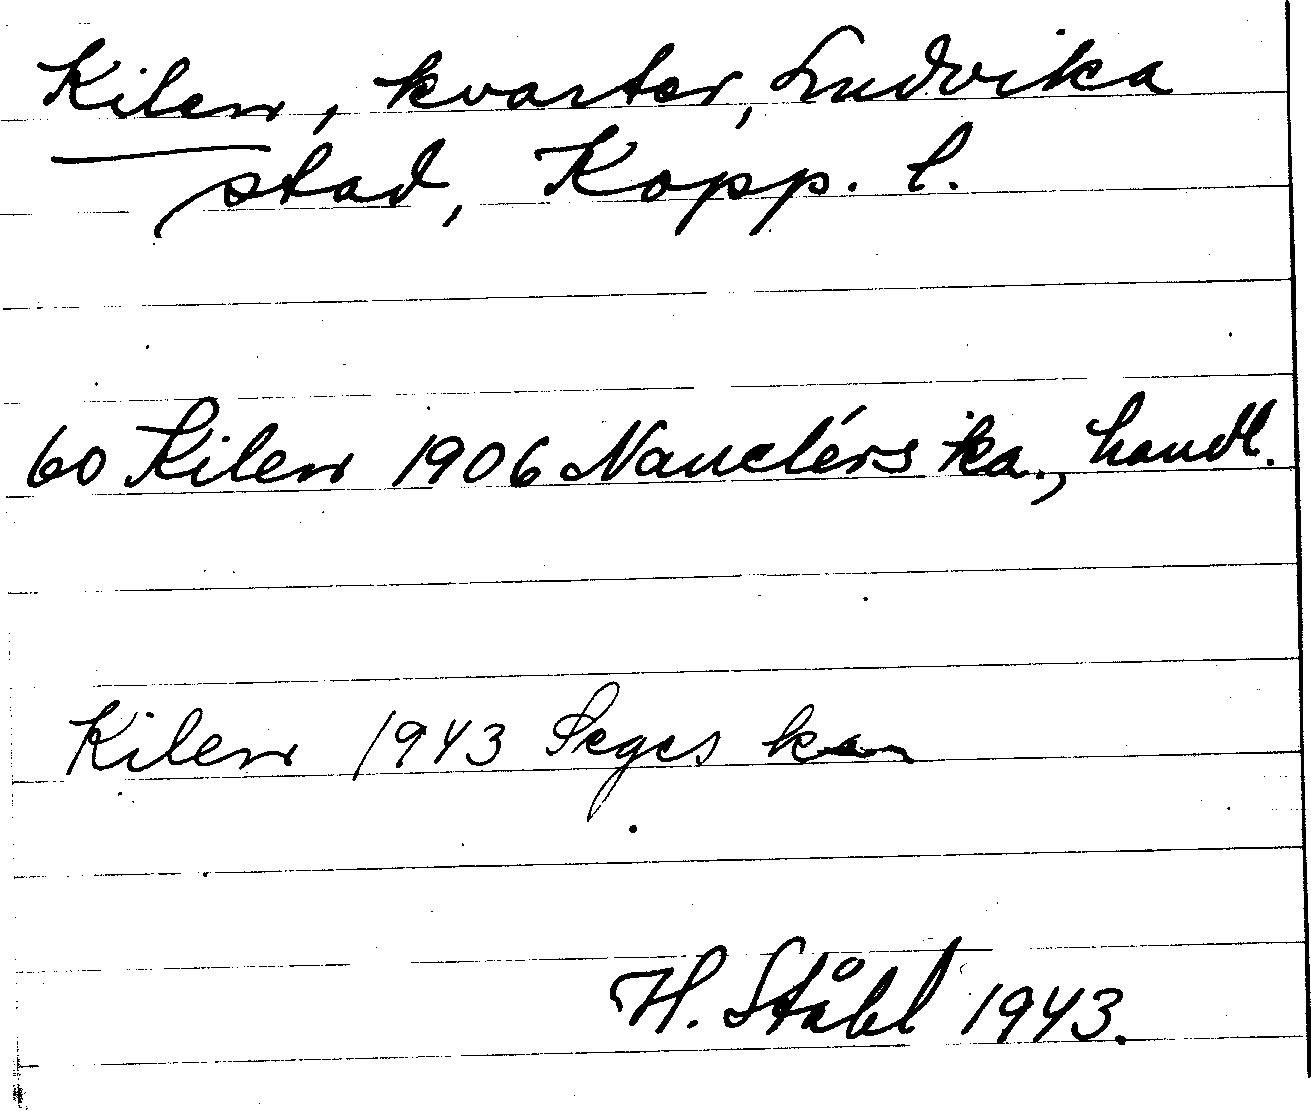 Kilen, kvarter, Ludvika
stad, Kopp. l.
60 Kilen 1906 Nauclérs ka., handl.
Kilen 1943 Seges kan
H. Ståhl 1943.